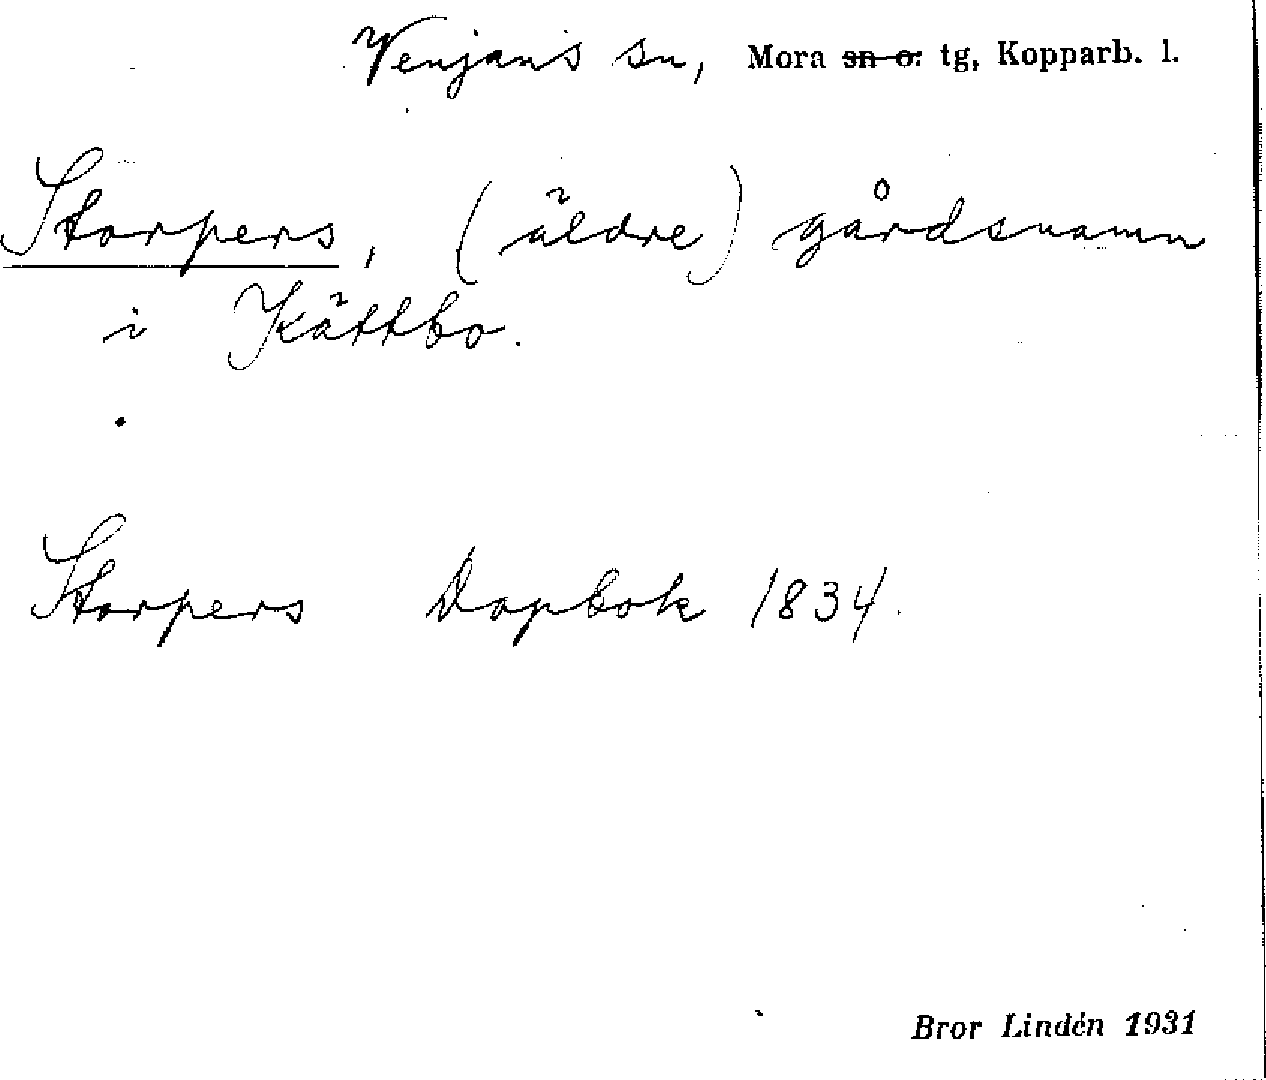 Venjans sn, Mora sn o. tg, Kopparb. l.
Storpers, (äldre) gårdsnamn
i Kättbo.
Storpers Dopbok 1834.
Bror Lindén 1931